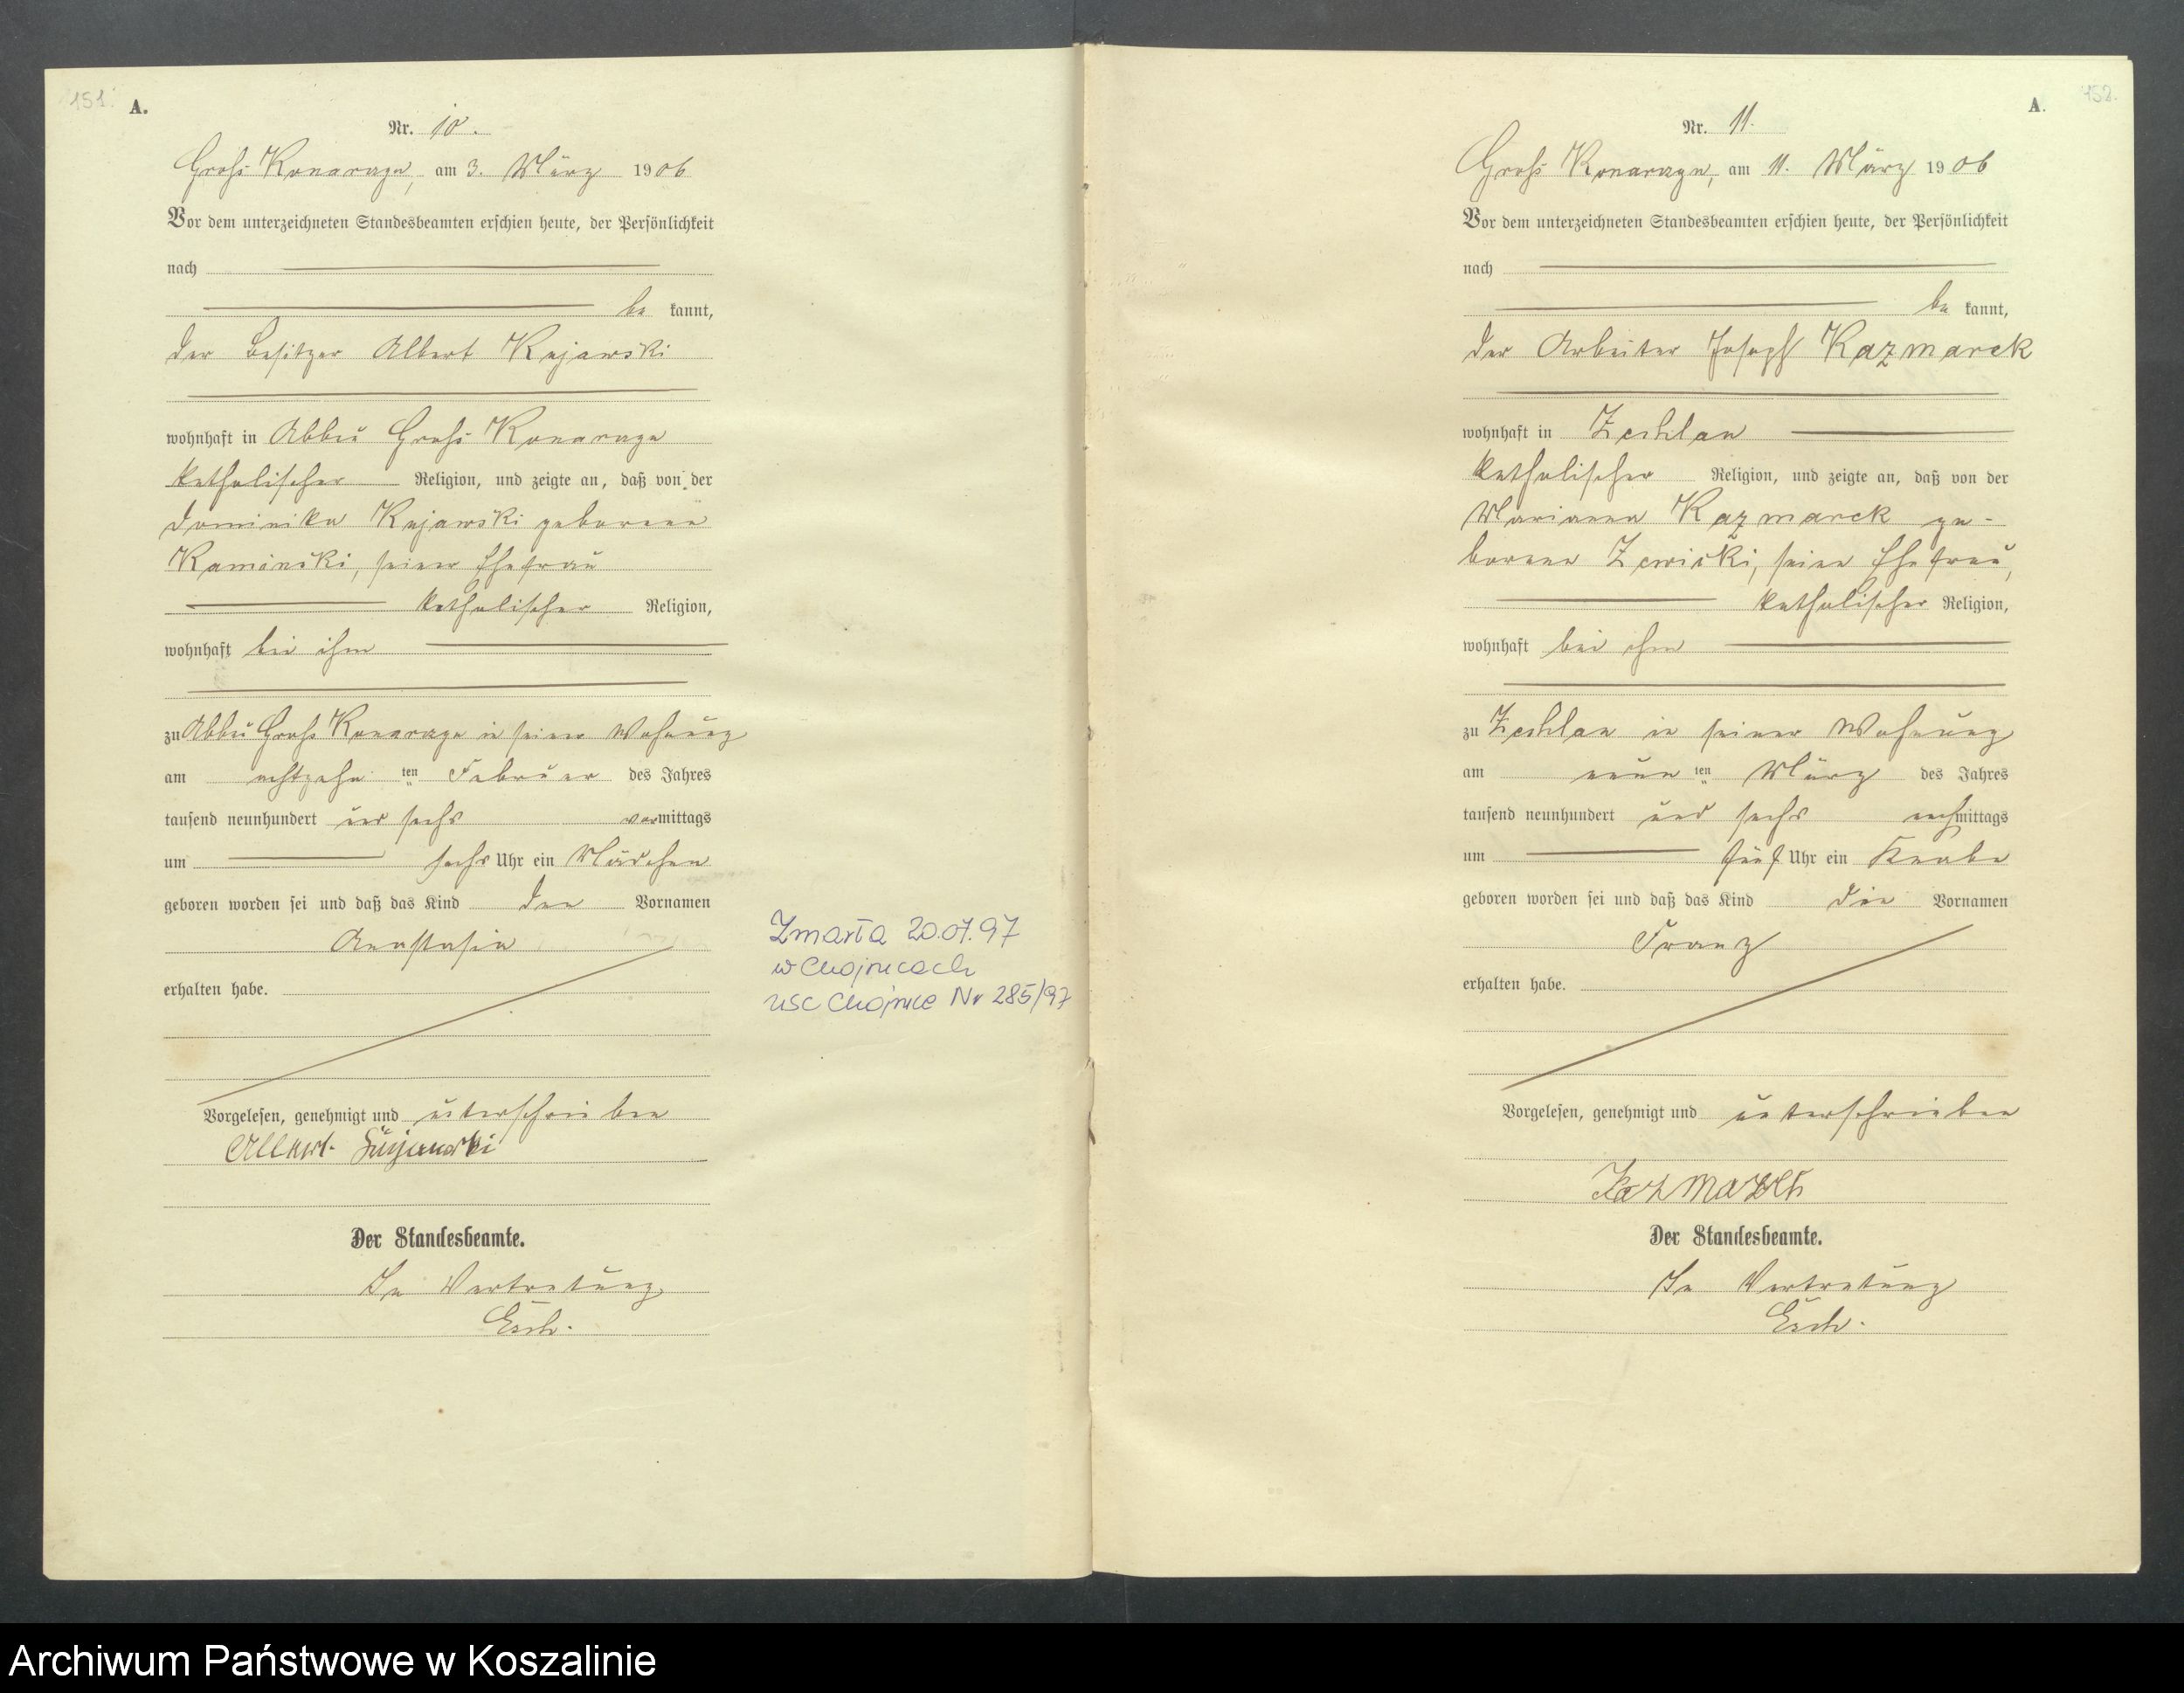 151.
A.
Nr. 10.
Groß Konarzyn, am 3. März 1906
Vor dem unterzeichneten Standesbeamten erschien heute, der Persönlichkeit
nach
be kannt,
der Besitzer Albert Kujawski
wohnhaft in Abbau Groß Konarzyn
katholischer Religion, und zeigte an, daß von der
Dominika Kujawski geborene
Kaminski, seiner Ehefrau
katholischer Religion,
wohnhaft bei ihm
zu Abbau Groß Konarzyn in seiner Wohnung
am achtzehn ten Februar des Jahres
tausend neunhundert und sechs vormittags
um sechs Uhr ein Mädchen
geboren worden sei und daß das Kind den Vornamen
Anastasia
erhalten habe.
Zmarła 20.07.97
w Chojnicach
USC Chojnice Nr 285/97
Vorgelesen, genehmigt und unterschrieben
Albert Kujawski
Der Standesbeamte.
In Vertretung
Esch.
152.
A.
Nr. 11.
Groß Konarzyn, am 11. März 1906
Vor dem unterzeichneten Standesbeamten erschien heute, der Persönlichkeit
nach
be kannt,
der Arbeiter Joseph Kazmarek
wohnhaft in Zechlau
katholischer Religion, und zeigte an, daß von der
Marianna Kazmarek ge-
borene Zewicki, seine Ehefrau,
katholischer Religion,
wohnhaft bei ihm
zu Zechlau in seiner Wohnung
am neun ten März des Jahres
tausend neunhundert und sechs nachmittags
um fünf Uhr ein Knabe
geboren worden sei und daß das Kind die Vornamen
Franz
erhalten habe.
Vorgelesen, genehmigt und unterschrieben
Kazmarek
Der Standesbeamte.
In Vertretung
Esch.
Archiwum Państwowe w Koszalinie